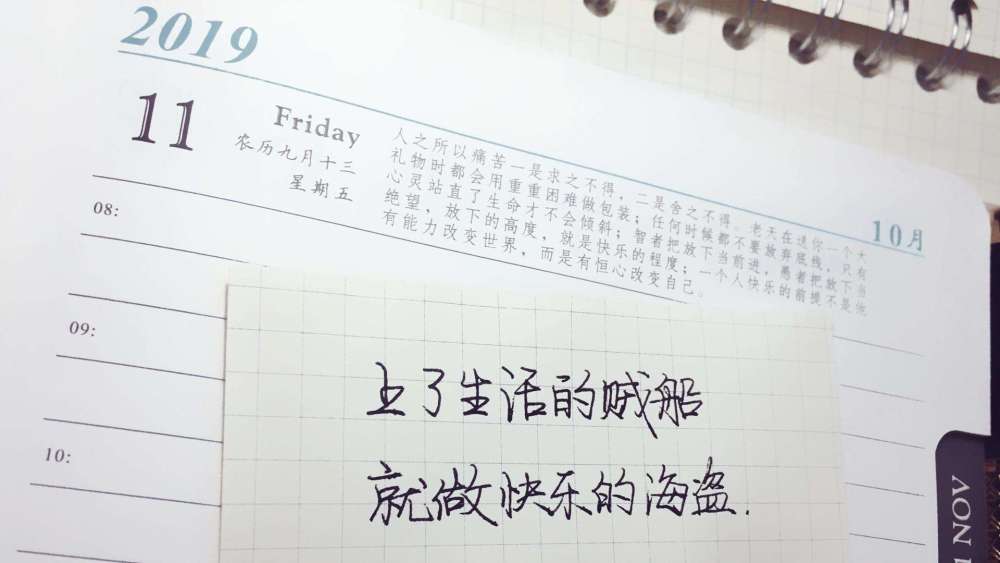 2019
11
Friday
农历九月十三
星期五
10月
人之所以痛苦一是求之不得，二是舍之不得。老天在送你一个大
礼物时都会用重重困难做包装；任何时候都不要放弃底线，只有
心灵站直了生命才不会倾斜；智者把放下当前进，愚者把放下当
绝望，放下的高度，就是快乐的程度；一个人快乐的前提不是他
有能力改变世界，而是有恒心改变自己。
08:
09:
10:
上了生活的贼船
就做快乐的海盗.
11 NOV